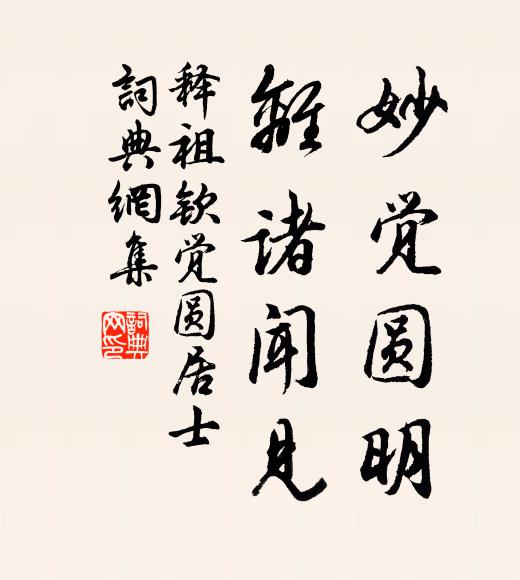 妙觉圆明
離诸闻见
释祖钦觉圆居士
詞典網集
詞典网印